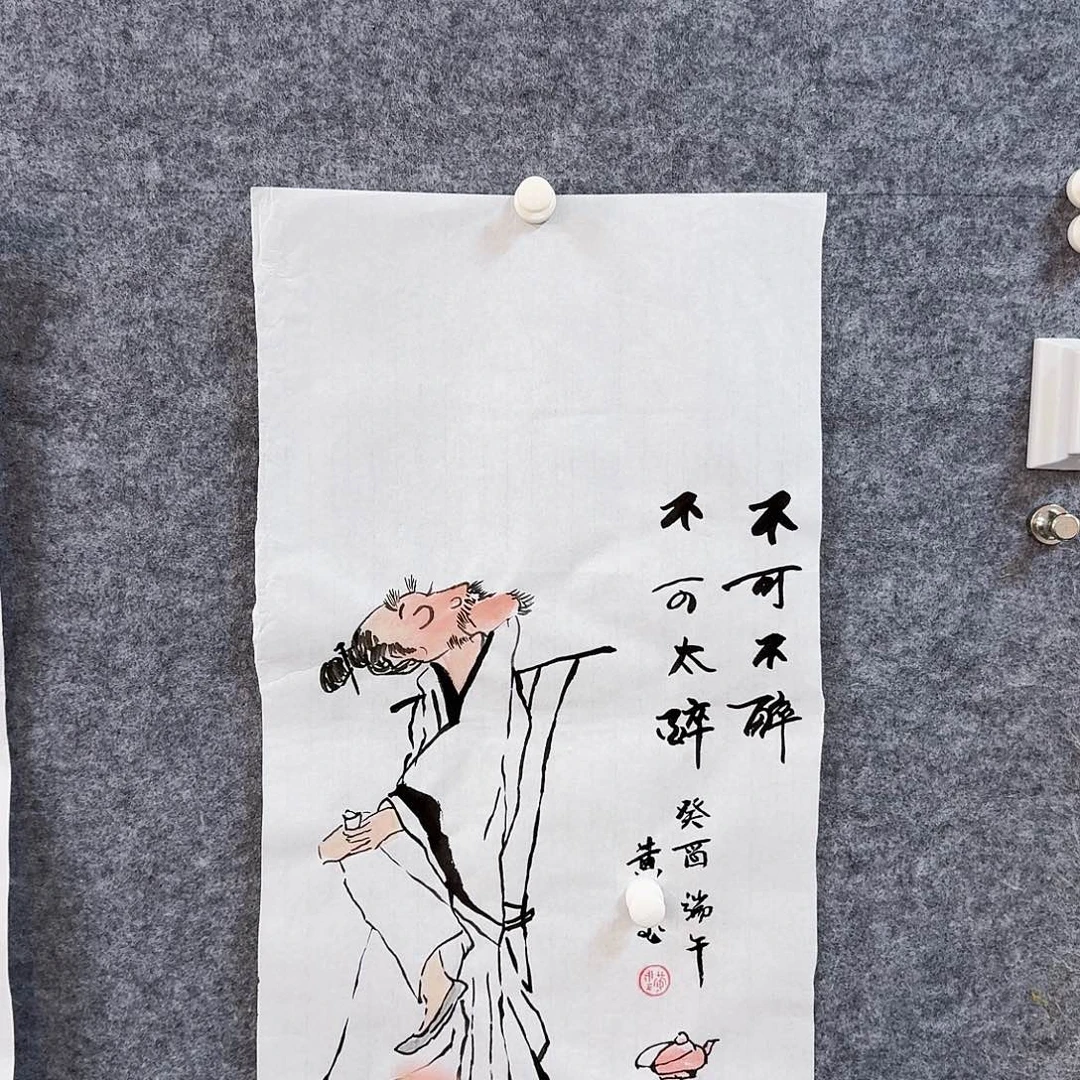 不可不醉
不可太醉
癸酉端午
黄